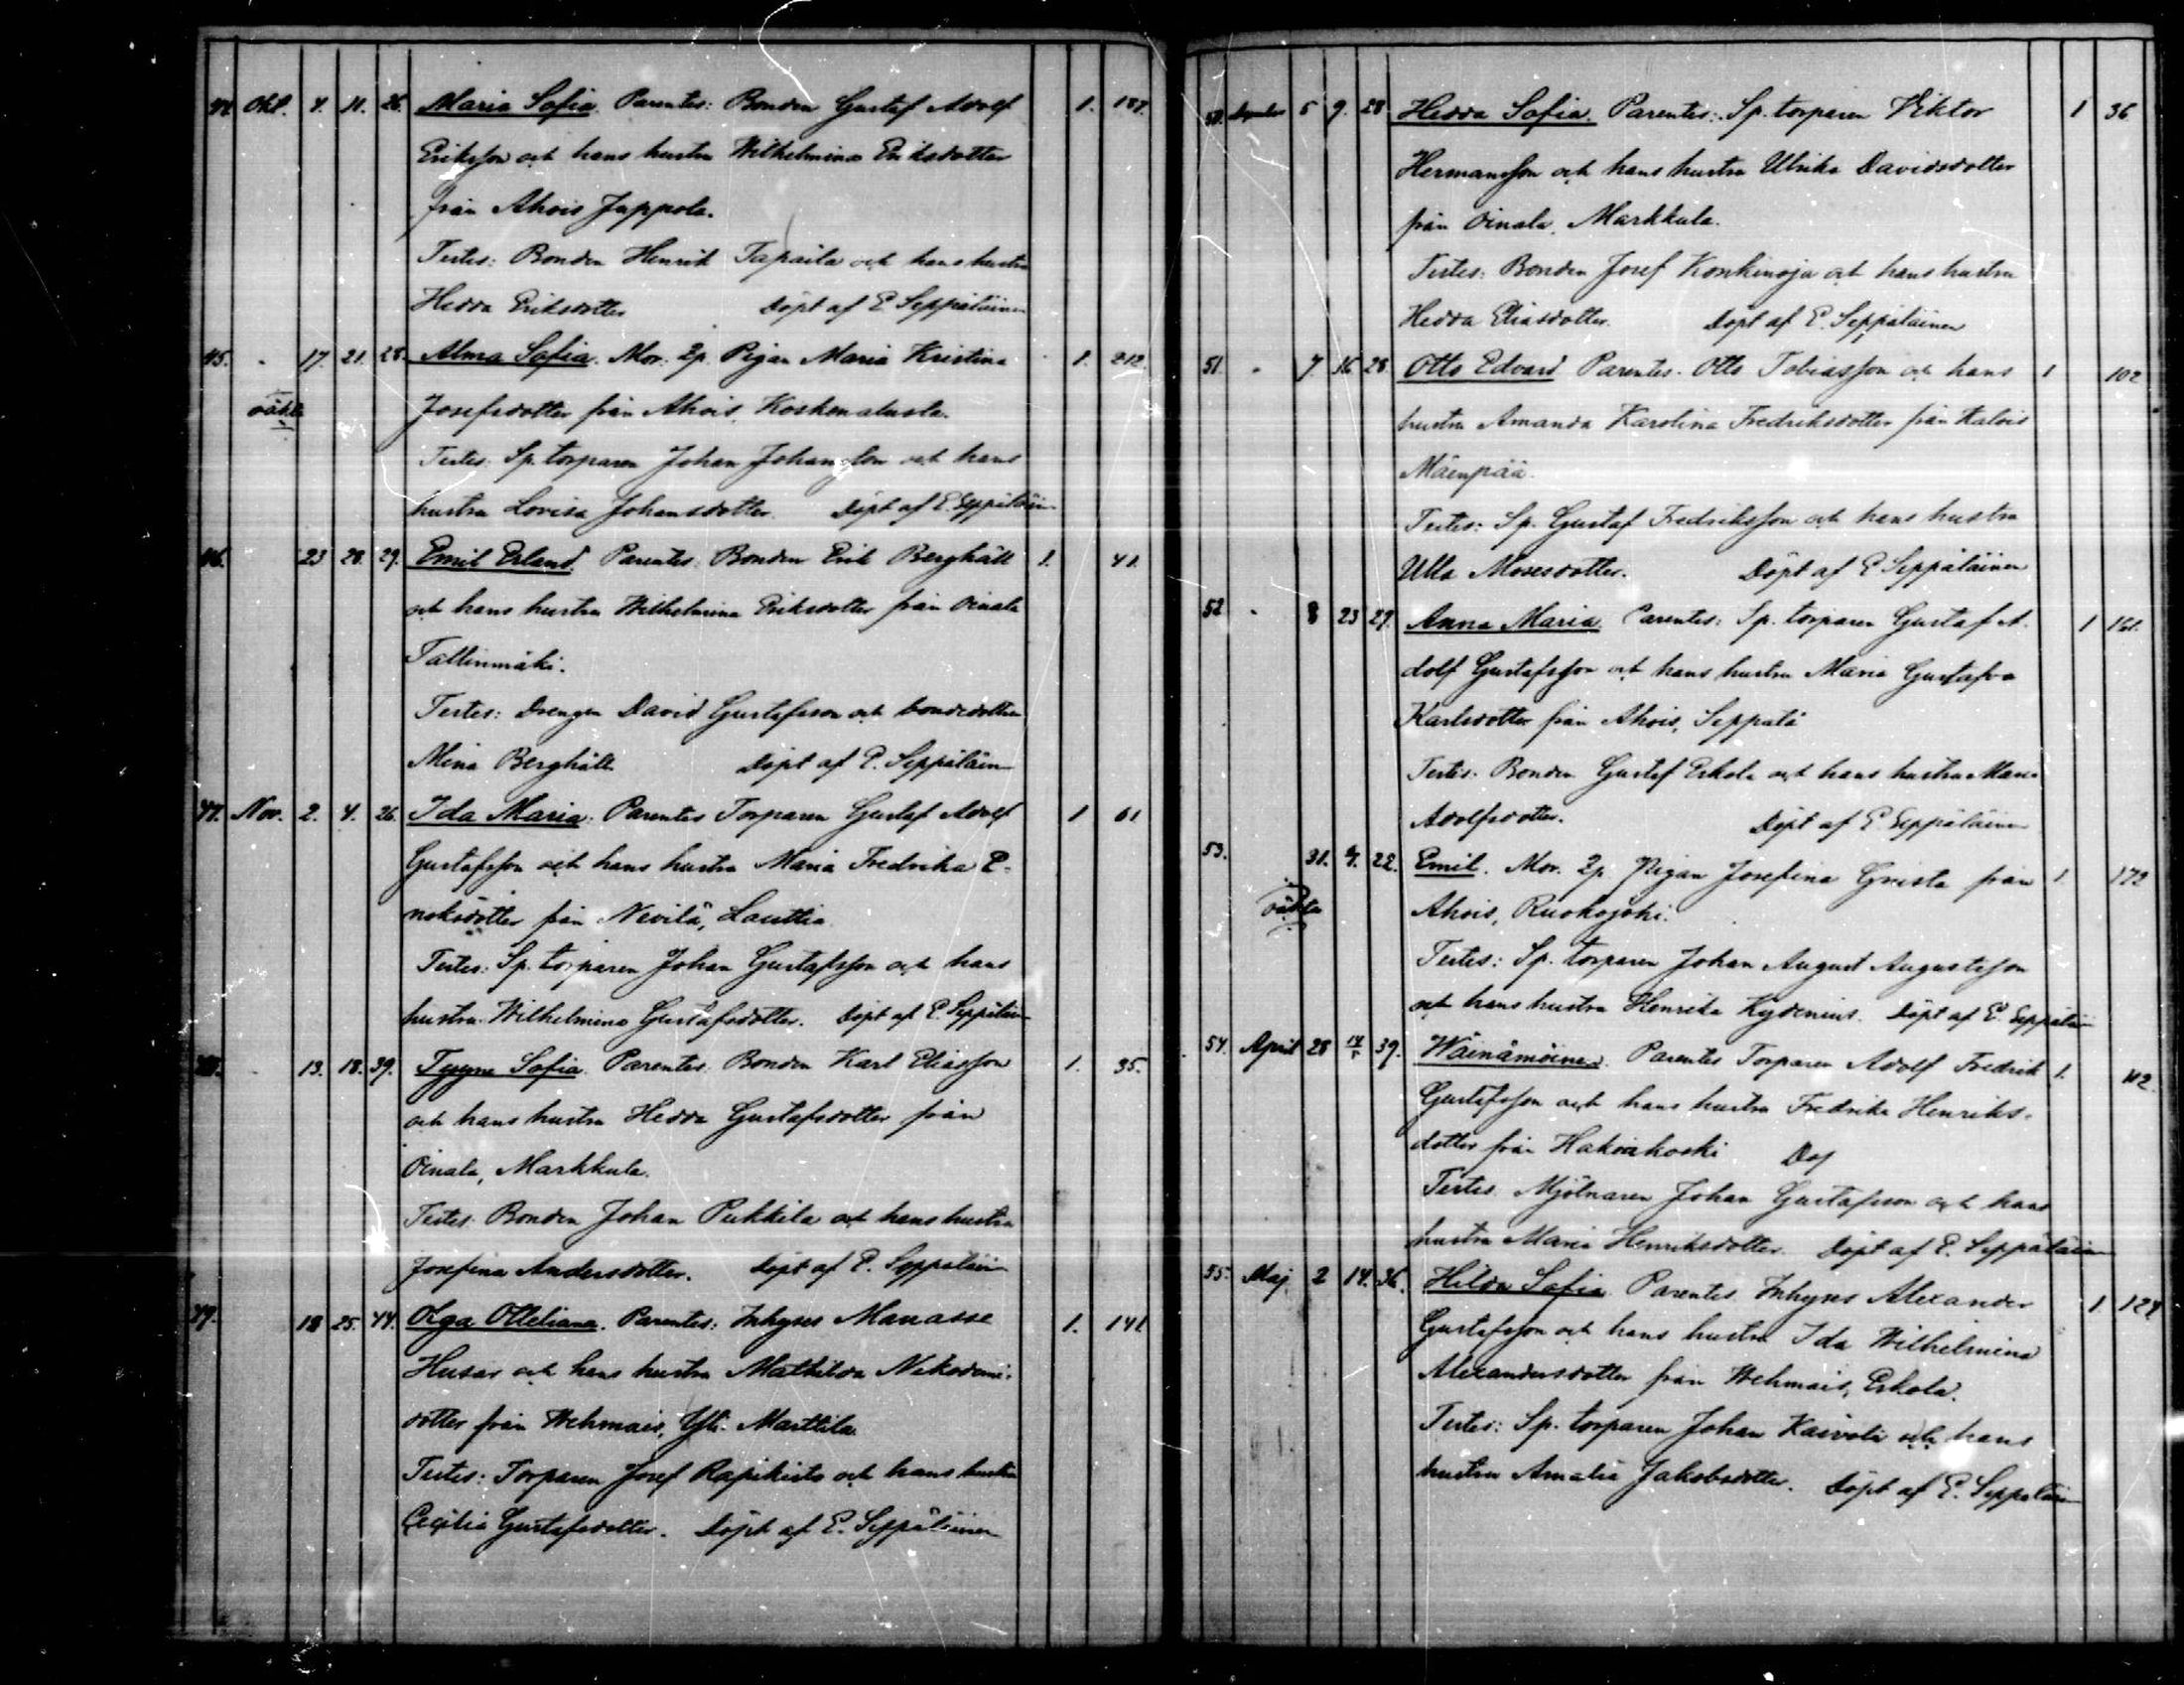 44. Okt. 4. 11. 26. Maria Sofia. Parentes: Bonden Gustaf Adolf 1. 187.
Eriksson och hans hustru Wilhelmina Eriksdotter
från Ahois Juppola.
Testes: Bonden Henrik Tapaila och hans hustru
Hedda Eriksdotter Döpt af E. Seppäläinen
45. " 17. 21. 28. Alma Sofia. Mor. Sp. Pigan Maria Kristina 1. 212.
oäkta Josefsdotter från Ahois, Koskenalusta.
Testes: Sp. torparen Johan Johansson och hans
hustru Lovisa Johansdotter. Döpt af E. Seppäläinen
46. 23 28. 29. Emil Erland. Parentes: Bonden Erik Berghäll 1. 41.
och hans hustru Wilhelmina Eriksdotter från Oinala
Tallinmäki.
Testes: Drengen David Gustafsson och bondedottren
Mina Berghäll Döpt af E. Seppäläinen
47. Nov. 2. 4. 26. Ida Maria. Parentes Torparen Gustaf Adolf 1 61
Gustafsson och hans hustru Maria Fredrika E-
noksdotter från Nevilä, Lauttia.
Testes: Sp. torparen Johan Gustafsson och hans
hustru Wilhelmina Gustafsdotter. Döpt af E. Seppäläinen
48. 13. 18. 39. Tyyne Sofia. Parentes. Bonden Karl Eliasson 1. 35.
och hans hustru Hedda Gustafsdotter från
Oinala, Markkula.
Testes: Bonden Johan Pukkila och hans hustru
Josefina Andersdotter. Döpt af E. Seppäläinen
49. 18 25. 44. Olga Otteliana. Parentes: Inhyses Manasse 1. 141
Husar och hans hustru Mathilda Nikodemi-
dotter från Wehmais, Yli-Marttila.
Testes: Torparen Josef Rapikisto och hans hustru
Cecilia Gustafsdotter. Döpt af E. Seppäläinen
50. December 5 9. 28 Hedda Sofia. Parentes: Sp. torparen Viktor 1 36
Hermansson och hans hustru Ulrika Davidsdotter
från Oinala, Markkula.
Testes: Bonden Josef Konkinoja och hans hustru
Hedda Eliasdotter. Döpt af E. Seppäläinen
51. " 7. 16 28. Otto Edvard Parentes. Otto Tobiasson och hans 1 102
hustru Amanda Karolina Fredriksdotter från Kalois
Mäenpää.
Testes: Sp. Gustaf Fredriksson och hans hustru
Ulla Mosesdotter. Döpt af E. Seppäläinen
52 " 8 23 29. Anna Maria. Parentes: Sp. torparen Gustaf A- 1 161.
dolf Gustafsson och hans hustru Maria Gustafva
Karlsdotter från Ahois, Seppälä
Testes: Bonden Gustaf Eskola och hans hustru Maria
Adolfsdotter. Döpt af E. Seppäläinen
53. 31. 22. Emil. Mor. Sp. Pigan Josefina Grista från 1. 172
oäkta Ahois, Ruokojoki.
Testes: Sp. torparen Johan August Augustsson
och hans hustru Henrika Kydenius. Döpt af E. Seppäläinen
54. April 28 14/5 39. Wäinämöinen. Parentes Torparen Adolf Fredrik 1. 112.
Gustafsson och hans hustru Fredrika Henriks-
dotter från Hakoiskoski Dop
Testes. Mjölnaren Johan Gustafsson och hans
hustru Maria Henriksdotter. Döpt af E. Seppäläinen
55. Maj 2 14. 36. Hilda Sofia. Parentes. Inhyses Alexander 1 124
Gustafsson och hans hustru Ida Wilhelmina
Alexandersdotter från Wehmais, Eskola.
Testes: Sp. torparen Johan Kaivola och hans
hustru Amalia Jakobsdotter. Döpt af E. Seppäläinen